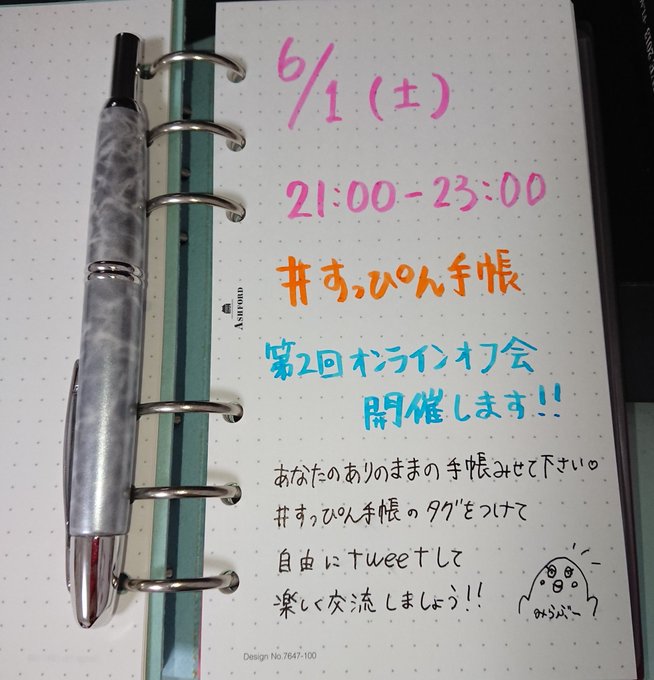 6/1(土)
21:00-23:00
#すっぴん手帳
第2回オンラインオフ会
開催します!!
あなたのありのままの手帳みせて下さい。
#すっぴん手帳のタグをつけて
自由にtweetして
楽しく交流しましょう!!
みらぶー
ASHFORD
Design No.7647-100